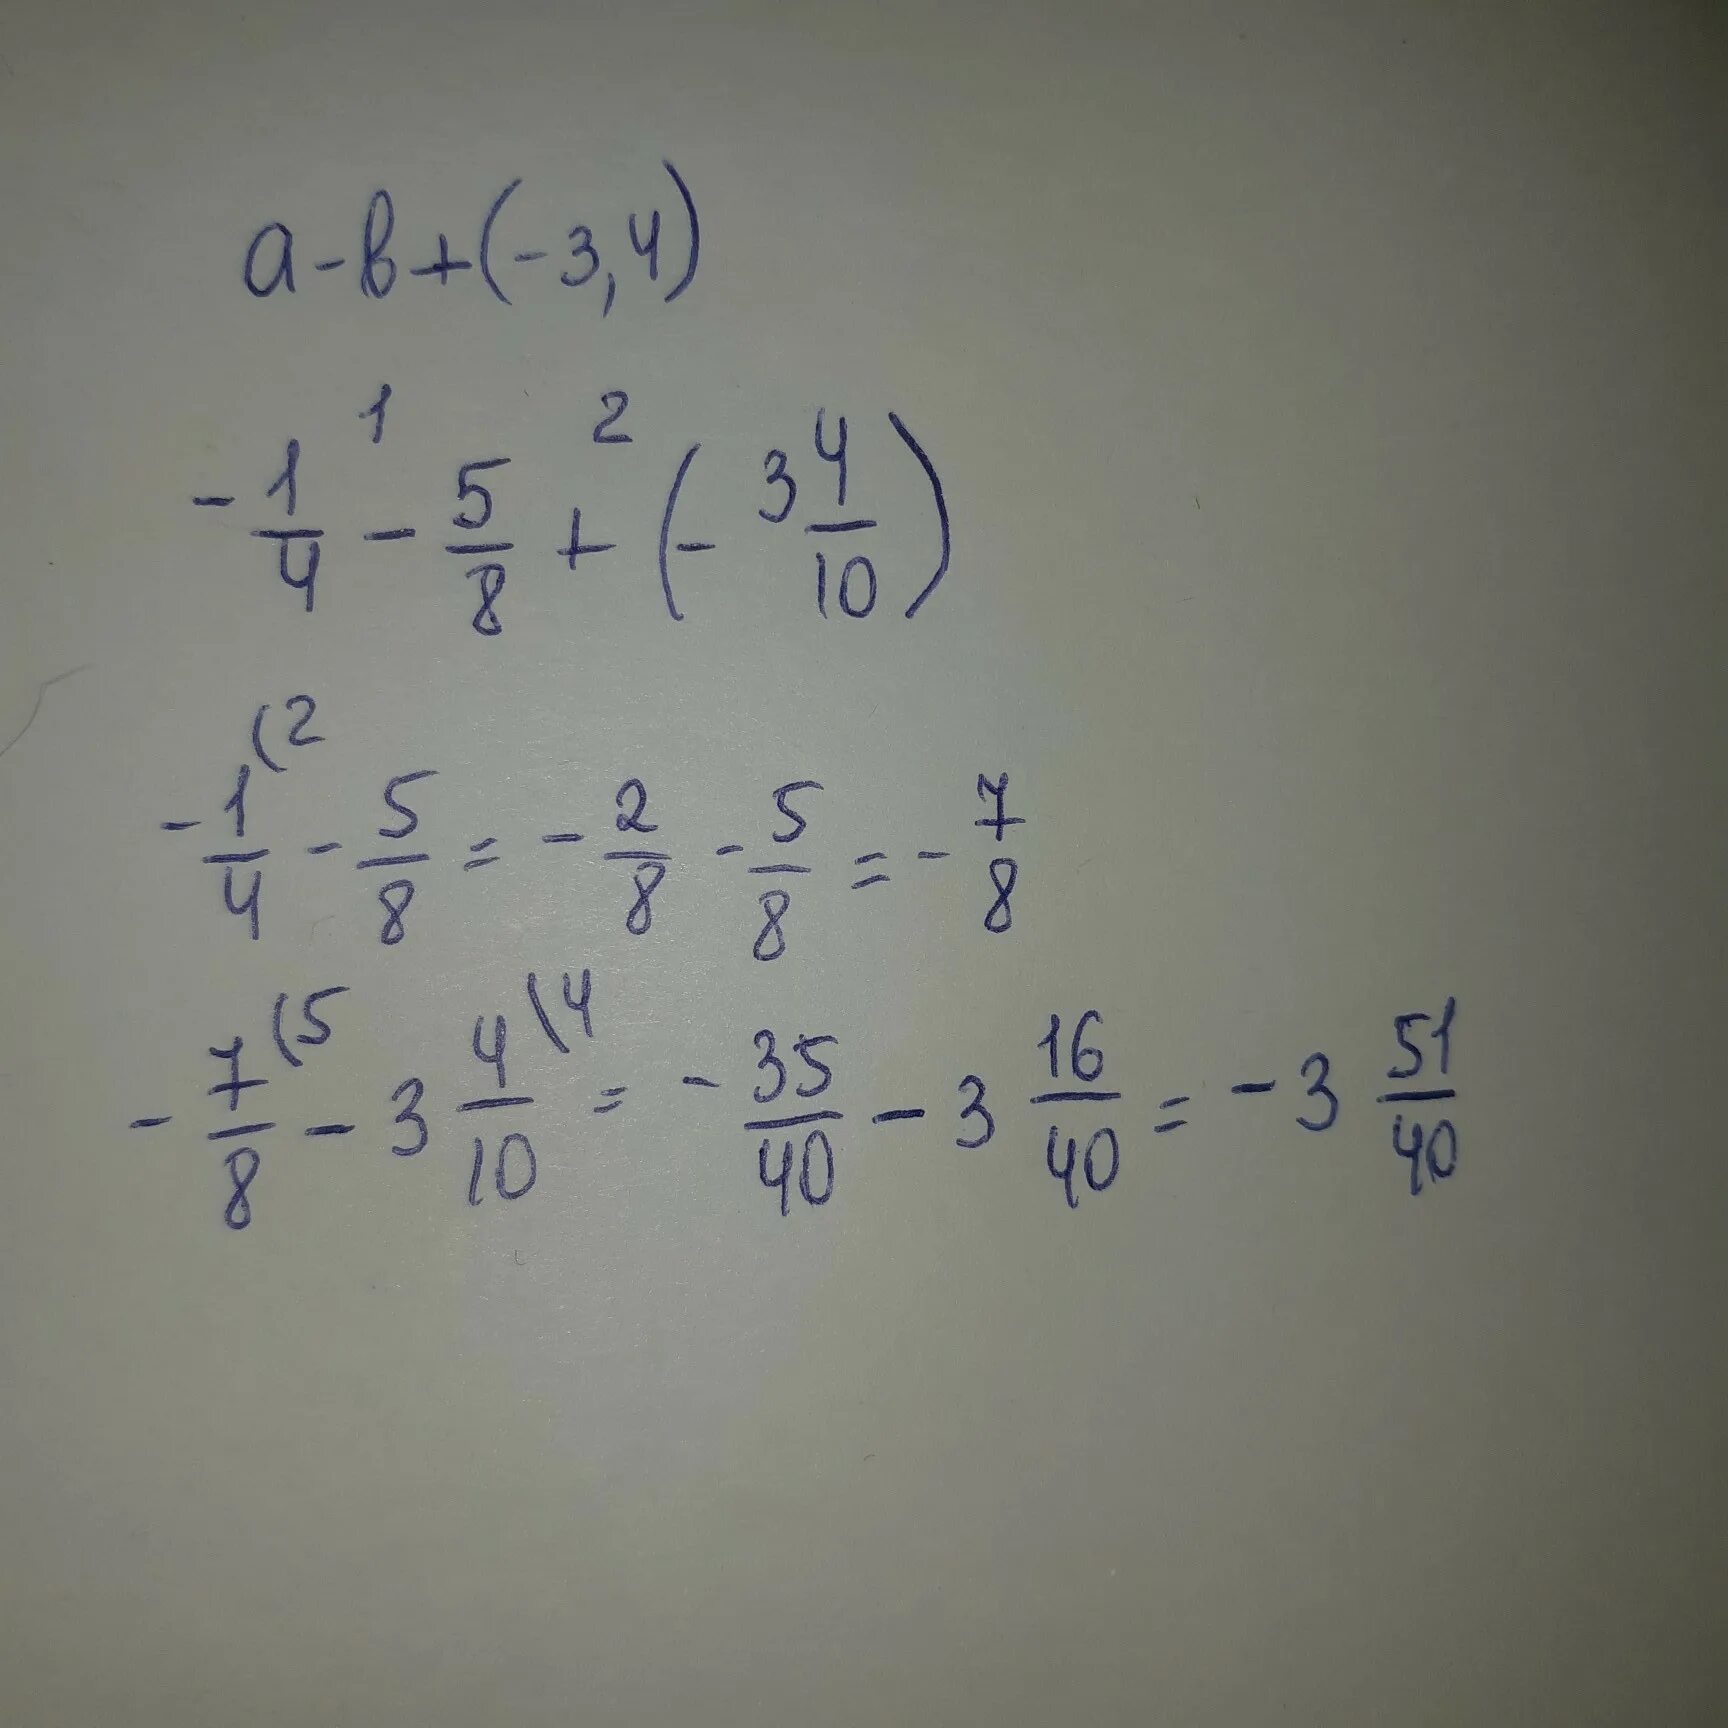 а-в+(-3,4)
-1/4 -¹ 5/8 +² (-3 4/10)
-1/4 (2 - 5/8 = -2/8 - 5/8 = -7/8
-7/8 (5 - 3 4/10 \4 = -35/40 - 3 16/40 = -3 51/40